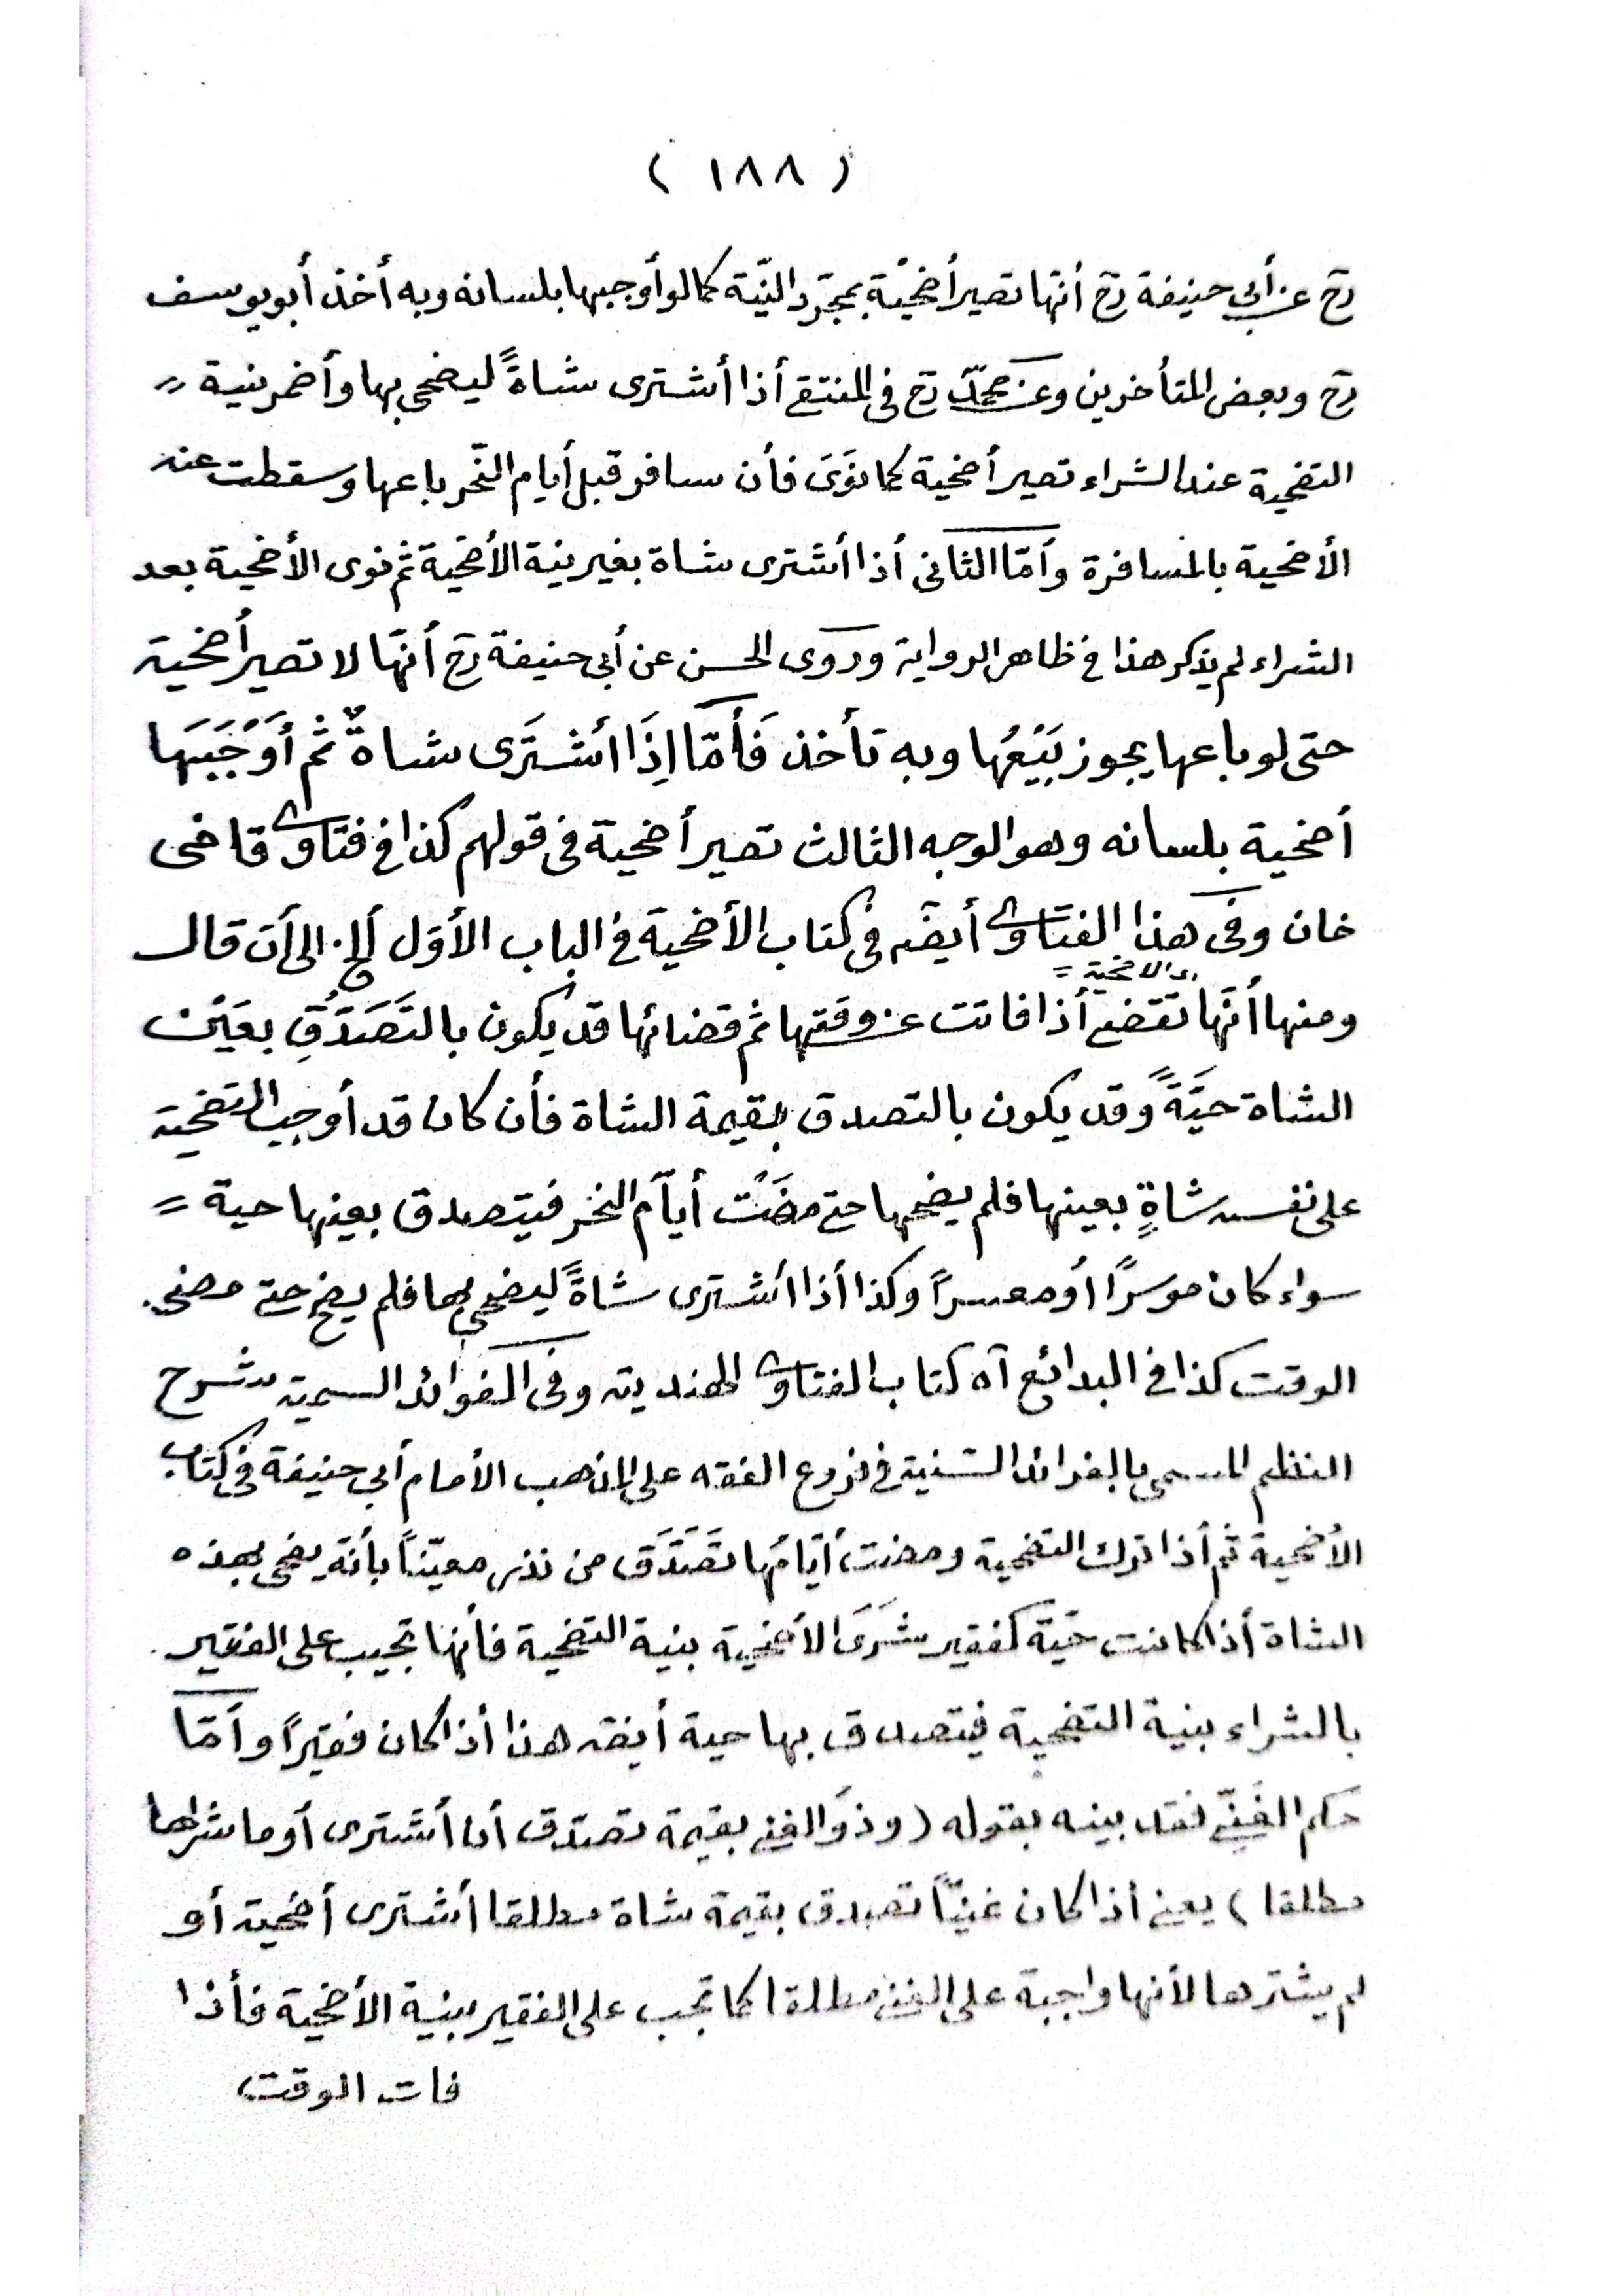 ( ١٨٨ )
رح عن أبي حنيفة رح أنّها تصير أضحيّة بمجرّد النيّة كما لو أوجبها بلسانه وبه أخذ أبو يوسف
رح وبعض المتأخرين وعن محمّد رح فى المنتقى أذا أشترى شاةً ليضحى بها وأضمر نية
التضحية عند الشراء تصير أضحية كما نَوَىَ فأن سافر قبل أيام النّحر باعها وسقطت عنه
الأضحية بالمسافرة وأمّا الثانى أذا أشترى شاة بغير نية الأضحية ثم نوى الأضحية بعد
الشراء لم يذكر هذا فى ظاهر الرواية وروى الحسن عن أبي حنيفة رح أنّها لا تصير أضحية
حتى لو باعها يجوز بَيْعُها وبه نأخذ فَأَمّا اِذَا أشْتَرَى شاةً ثم أَوْجَبَهَا
أضحية بلسانه وهو الوجه الثالث تصير أضحية فى قولهم كذا فى فتاوى قاضى
خان وفى هذا الفتاوى أيضً فى كتاب الأضحية فى الباب الأوّل ألخ. الى أن قال
اى الاضحية =
ومنها أنّها تقضى أذا فاتت عن وقتها ثم قضائها قد يكون بالتَصَدُّقِ بعَيْن
الشاة حَيَّةً وقد يكون بالتصدق بقيمة الشاة فأن كان قد أوجب التضحية
على نفسه شاةٍ بعينها فلم يضحها حتى مضَتْ أيّام النحر فيتصدق بعينها حية =
سواء كان موسرًا أو معسرًا وكذا أذا أشترى شاةً ليضحى بها فلم يضح حتى مضى
الوقت كذا فى البدائع آه كتاب الفتاوى الهندية وفى الفوائد السمية شرح
النظم المسمى بالفرائد السنية فى فروع الفقه على المذهب الأمام أبي حنيفة فى كتاب
الأضحية ثم أذا ترك التضحية ومضت أيّامُها تَصَدَّق من نذر معيّناً بأنّه يضحى بهذه
الشاة أذا كانت حَيّة كفقير شَرَىَ الأضحية بنية التضحية فأنها تجب على الفقير
بالشراء بنية التضحية فيتصدق بها حية أيضً هذا أذا كان فقيراً وأمّا
حكم الغنىّ فقد بينه بقوله (وذو الغنى بقيمة تصدّق أن أشترى أو ما شراها
مطلقا) يعنى أذا كان غنيّاً تصدق بقيمة شاة مطلقا أشترى أضحية أو
لم يشترها لأنها واجبة على الغنى مطلقا كما تجب على الفقير بنية الأضحية فأذا
فات الوقت